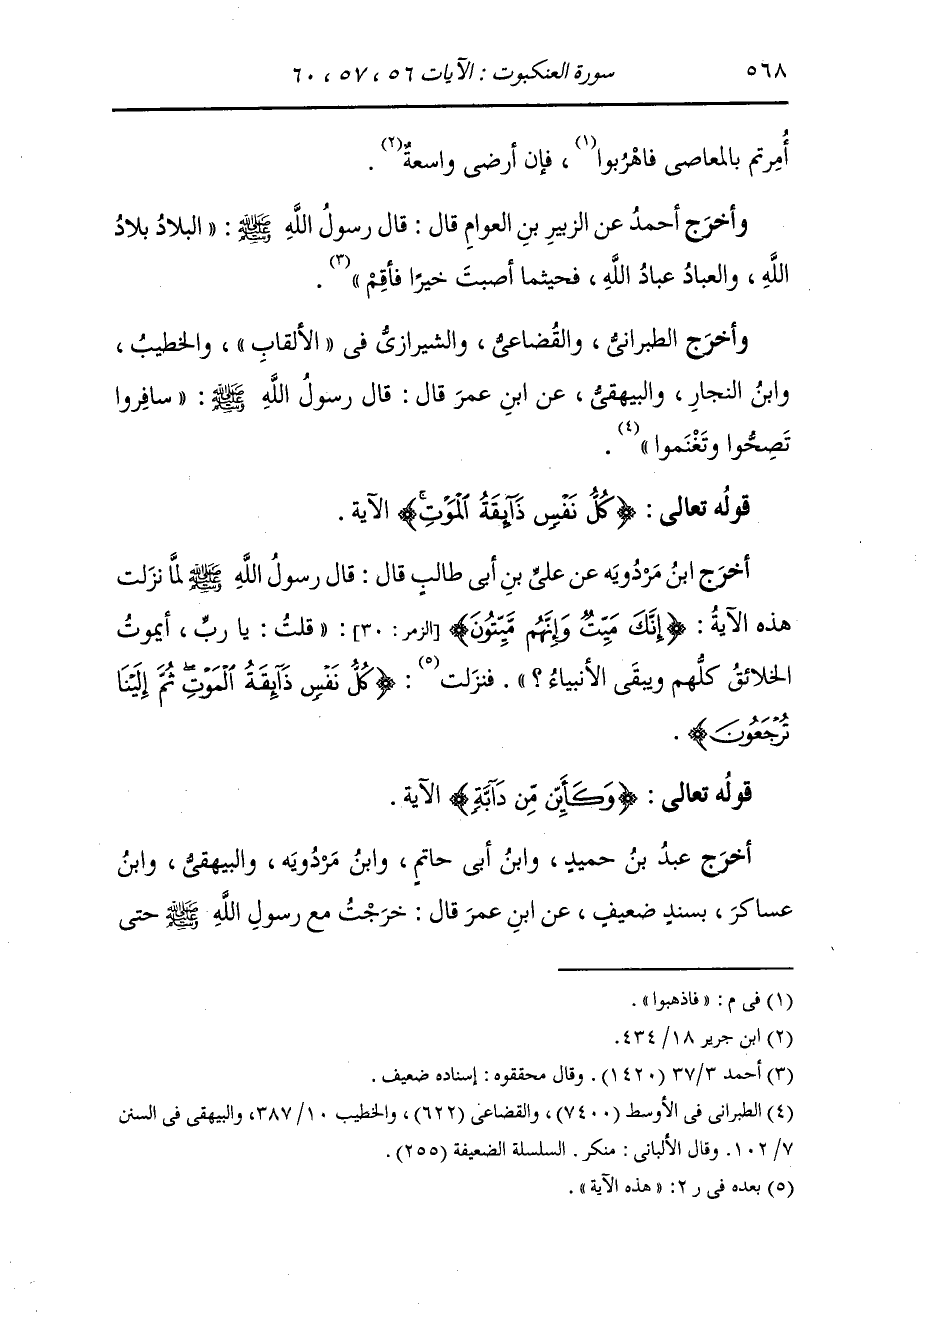 ٥٦٨
سورة العنكبوت : الآيات ٥٦ ، ٥٧ ، ٦٠
أُمِرتم بالمعاصى فاهْرُبوا(١) ، فإن أرضى واسعةٌ(٢) .
وأخرَج أحمدُ عن الزبيرِ بنِ العوامِ قال : قال رسولُ اللَّهِ ﷺ : « البلادُ بلادُ
اللَّهِ ، والعبادُ عبادُ اللَّهِ ، فحيثما أصبتَ خيرًا فأقِمْ »(٣) .
وأخرَج الطبرانىُّ ، والقُضاعىُّ ، والشيرازىُّ فى « الألقابِ » ، والخطيبُ ،
وابنُ النجارِ ، والبيهقىُّ ، عن ابنِ عمرَ قال : قال رسولُ اللَّهِ ﷺ : « سافِروا
تَصِحُّوا وتَغْنَموا »(٤) .
قولُه تعالى : ﴿كُلُّ نَفْسٍ ذَآئِقَةُ ٱلْمَوْتِۚ﴾ الآية .
أخرَج ابنُ مَرْدُويَه عن علىِّ بنِ أبى طالبٍ قال : قال رسولُ اللَّهِ ﷺ لمَّا نزَلت
هذه الآيةُ : ﴿إِنَّكَ مَيِّتٌ وَإِنَّهُم مَّيِّتُونَ﴾ [الزمر : ٣٠] : « قلتُ : يا ربِّ ، أيموتُ
الخلائقُ كلُّهم ويبقَى الأنبياءُ ؟ » . فنزَلت(٥) : ﴿كُلُّ نَفْسٍ ذَآئِقَةُ ٱلْمَوْتِۖ ثُمَّ إِلَيْنَا
تُرْجَعُونَ﴾ .
قولُه تعالى : ﴿وَكَأَيِّن مِّن دَآبَّةٍ﴾ الآية .
أخرَج عبدُ بنُ حميدٍ ، وابنُ أبى حاتمٍ ، وابنُ مَرْدُويَه ، والبيهقىُّ ، وابنُ
عساكرَ ، بسندٍ ضعيفٍ ، عن ابنِ عمرَ قال : خرَجْتُ مع رسولِ اللَّهِ ﷺ حتى
(١) فى م : « فاذهبوا » .
(٢) ابن جرير ١٨/ ٤٣٤.
(٣) أحمد ٣/ ٣٧ (١٤٢٠) . وقال محققوه : إسناده ضعيف .
(٤) الطبرانى فى الأوسط (٧٤٠٠) ، والقضاعى (٦٢٢) ، والخطيب ١٠/ ٣٨٧، والبيهقى فى السنن
٧/ ١٠٢. وقال الألبانى : منكر . السلسلة الضعيفة (٢٥٥) .
(٥) بعده فى ر ٢: « هذه الآية » .